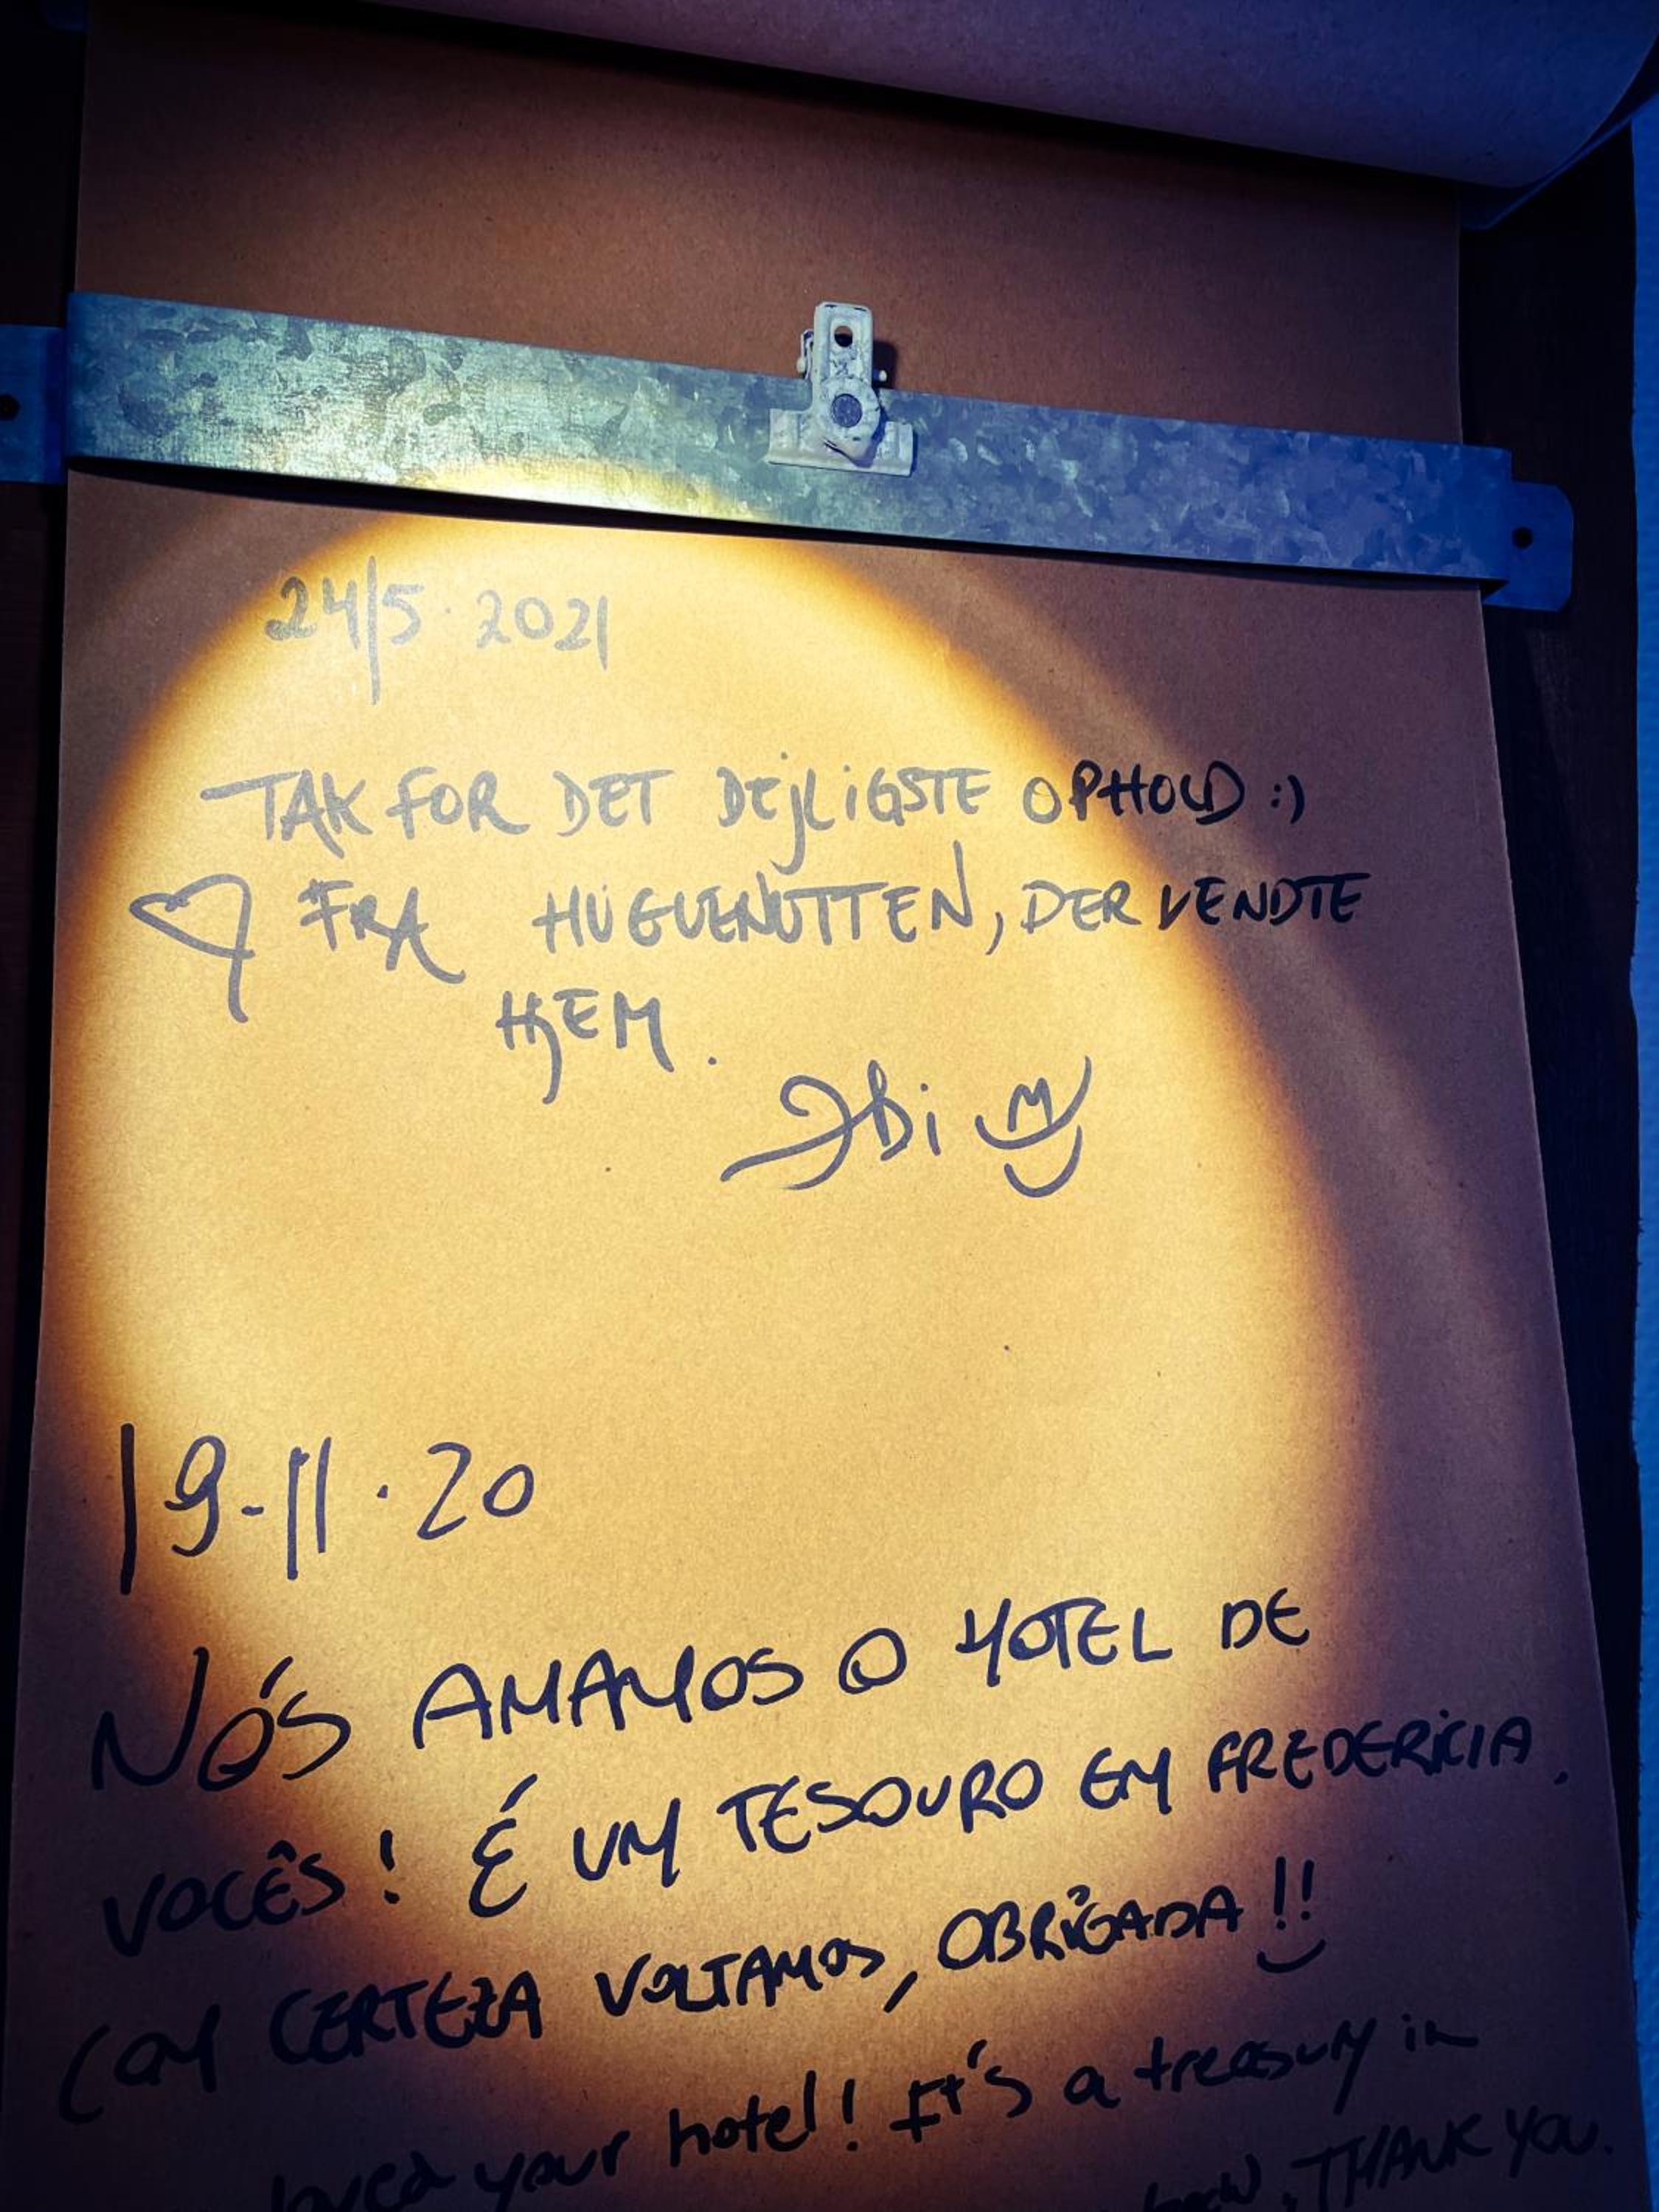 24/5·2021
TAK FOR DET DEJLIGSTE OPHOLD :)
FRA HUGUENOTTEN, DER VENDTE
HJEM.
19-11·20
NÓS AMAMOS O HOTEL DE
VOCÊS! É UM TESOURO EM FREDERICIA.
COM CERTEZA VOLTAMOS, OBRIGADA!!
loved your hotel! It's a treasury in
back, THANK YOU.